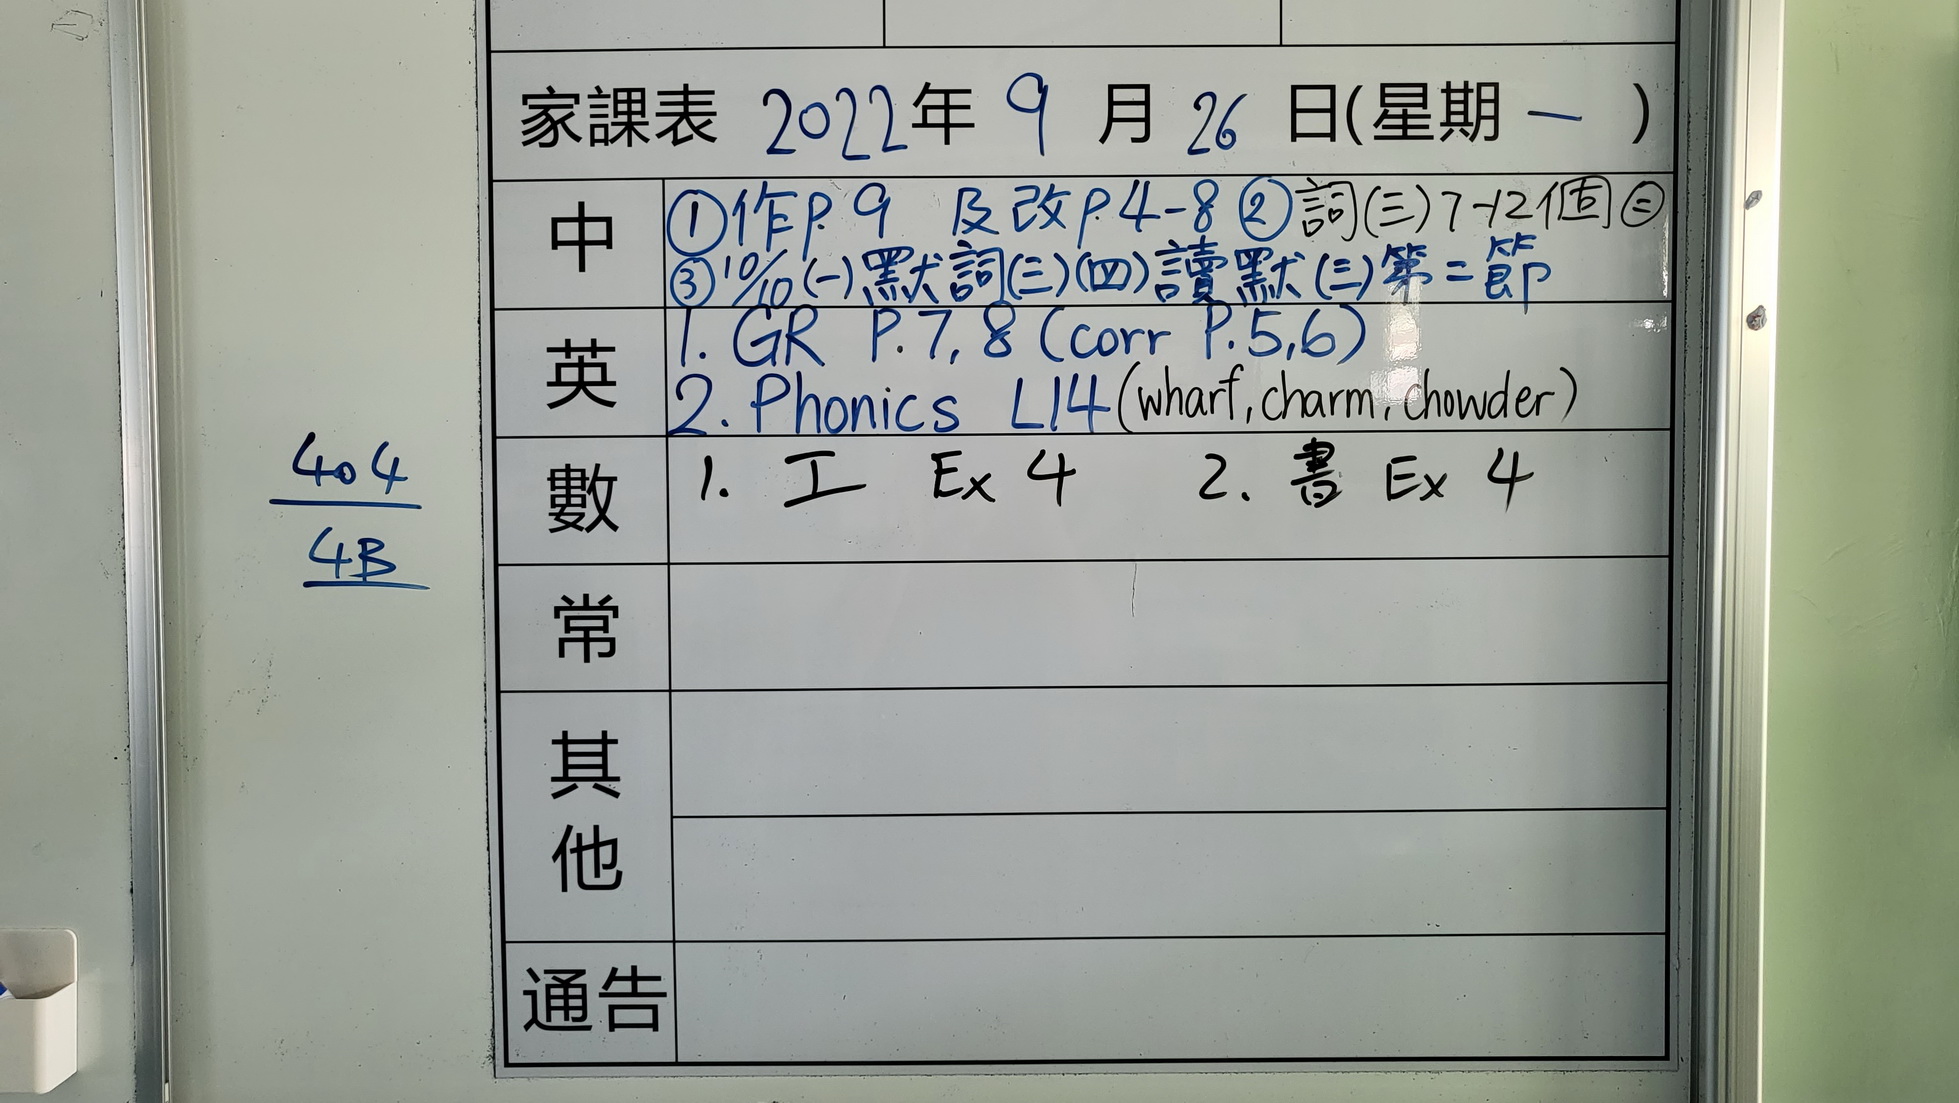 家課表 2022年 9 月 26 日(星期 一 )
中 ①作P.9 及改P.4-8 ②詞(三)7-12個㊁
③10/10(一)默詞(三)(四)讀默(三)第二節
英 1. GR P.7, 8 (corr P.5,6)
2. Phonics L14 (wharf, charm, chowder)
數 1. 工 Ex 4 2. 書 Ex 4
常
其他
通告
404
4B